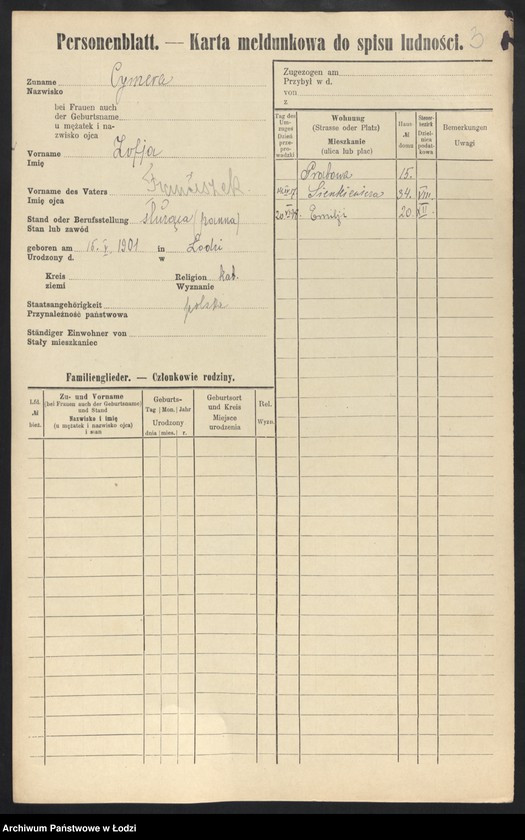 Personenblatt. — Karta meldunkowa do spisu ludności. 3
Zuname Cymera
Nazwisko
bei Frauen auch
der Geburtsname
u mężatek i na-
zwisko ojca
Vorname Zofja
Imię
Vorname des Vaters Franciszek
Imię ojca
Stand oder Berufsstellung służąca (panna)
Stan lub zawód
geboren am 15. V. 1901 in Łodzi
Urodzony d. w
Kreis Religion kat.
ziemi Wyznanie
Staatsangehörigkeit polska
Przynależność państwowa
Ständiger Einwohner von
Stały mieszkaniec
Zugezogen am
Przybył w d.
von
z
Tag des Um-zuges Dzień prze-prowadzki
Wohnung
(Strasse oder Platz)
Mieszkanie
(ulica lub plac)
Haus № domu
Dziel-nica podat-kowa
Bemerkungen
Uwagi
15.
Sienkiewicza 34. VIII.
Emilji 20. XII.
Familienglieder. — Członkowie rodziny.
Lfd. № bież.
Zu- und Vorname
(bei Frauen auch der Geburtsname)
und Stand
Nazwisko i imię
(u mężatek i nazwisko ojca)
i wan
Geburts-
Tag Mon. Jahr
Urodzony
dnia mies. r.
Geburtsort
und Kreis
Miejsce
urodzenia
Rel.
Wyzn.
Archiwum Państwowe w Łodzi